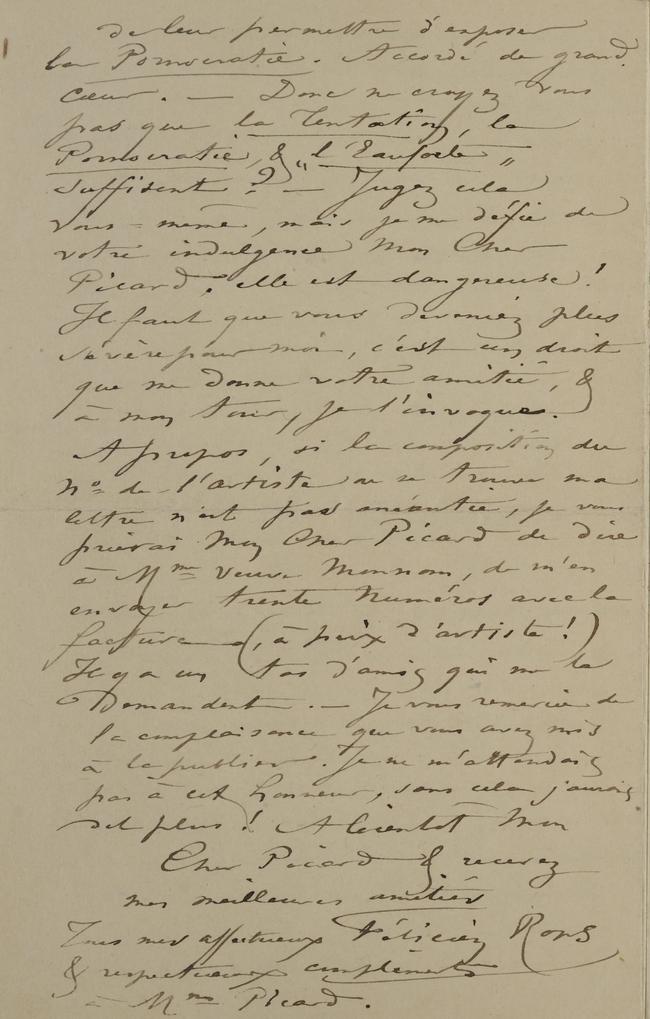 de leur permettre d'exposer
la Pornocratie. Accordé de grand
cœur. — Donc ne croyez vous
pas que la Tentation, la
Pornocratie, & "l'Eauforte"
suffisent ? — Jugez cela
vous-même, mais je me défie de
votre indulgence Mon Cher
Picard, elle est dangereuse !
Il faut que vous deveniez plus
sévère pour moi, c'est un droit
que me donne votre amitié, &
à mon tour, je l'invoque.
A propos, si la composition du
no de l'artiste ou se trouve ma
lettre n'est pas anéantie, je vous
prierai Mon Cher Picard de dire
à Mme veuve Monnom, de m'en
envoyer trente Numéros avec la
facture (, à prix d'artiste !)
Il y a un tas d'amis qui me la
Demandent. — Je vous remercie de
la complaisance que vous avez mis
à la publier. Je ne m'attendais
pas à cet honneur, sans cela j'aurais
dit plus ! A bientôt Mon
Cher Picard & recevez
mes meilleures amitiés
Félicien Rops
Tous mes affectueux
& respectueux compliments
à Mme Picard.